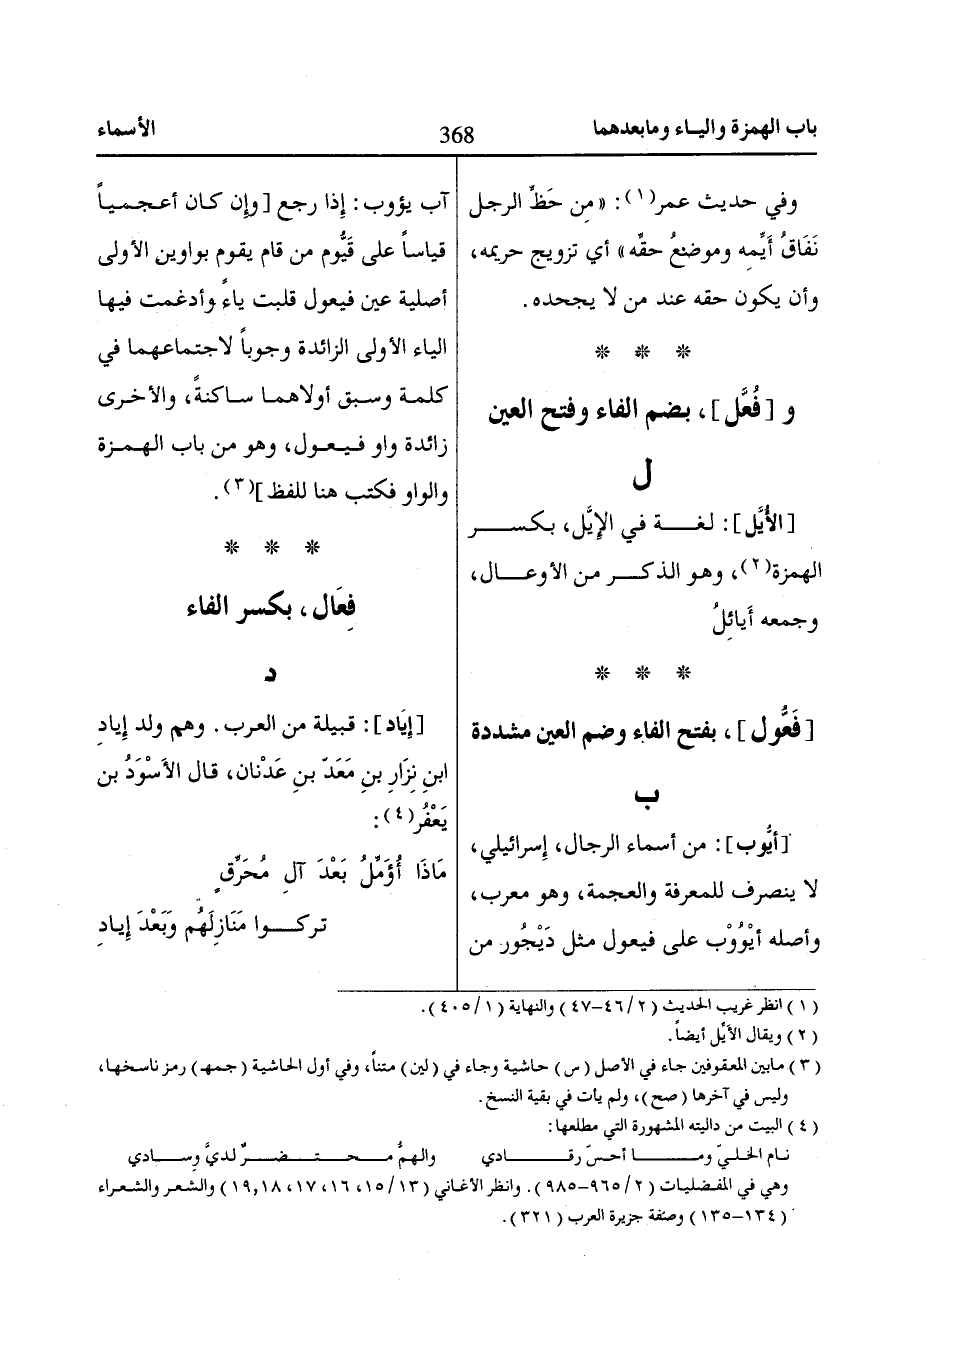 باب الهمزة والياء ومابعدهما
368
الأسماء
وفي حديث عمر(١): «مِن حَظِّ الرجل
نَفَاقُ أَيِّمِه وموضعُ حقِّه» أي تزويج حريمه،
وأن يكون حقه عند من لا يجحده.
* * *
و [فُعَّل]، بضم الفاء وفتح العين
ل
[الأُيَّل]: لغة في الإيَّل، بكسر
الهمزة(٢)، وهو الذكر من الأوعال،
وجمعه أَيائِلُ
* * *
[فَعُّول]، بفتح الفاء وضم العين مشددة
ب
[أيُّوب]: من أسماء الرجال، إسرائيلي،
لا ينصرف للمعرفة والعجمة، وهو معرب،
وأصله أيْوُوْب على فيعول مثل دَيْجُور من
آب يؤوب: إذا رجع [وإن كان أعجمياً
قياساً على قَيُّوم من قام يقوم بواوين الأولى
أصلية عين فيعول قلبت ياءً وأدغمت فيها
الياء الأولى الزائدة وجوباً لاجتماعهما في
كلمة وسبق أولاهما ساكنةً، والأخرى
زائدة واو فيعول، وهو من باب الهمزة
والواو فكتب هنا للفظ](٣).
* * *
فِعَال، بكسر الفاء
د
[إيَاد]: قبيلة من العرب. وهم ولد إيادِ
ابنِ نِزَارِ بنِ مَعَدّ بنِ عَدْنان، قال الأسْوَدُ بن
يَعْفُر(٤):
مَاذَا أُؤَمِّلُ بَعْدَ آلِ مُحَرِّقٍ
تركوا مَنَازِلَهُم وَبَعْدَ إيادِ
(١) انظر غريب الحديث (٢/ ٤٦–٤٧) والنهاية (١/ ٤٠٥).
(٢) ويقال الأيِّل أيضاً.
(٣) مابين المعقوفين جاء في الأصل (س) حاشية وجاء في (لين) متناً، وفي أول الحاشية (جمهـ) رمز ناسخها،
وليس في آخرها (صح)، ولم يأت في بقية النسخ.
(٤) البيت من داليته المشهورة التي مطلعها:
نام الخليّ وما أحسّ رقادي والهمُّ محتضرٌ لديَّ وسادي
وهي في المفضليات (٢/ ٩٦٥–٩٨٥). وانظر الأغاني (١٣/ ١٥، ١٦، ١٧، ١٩,١٨) والشعر والشعراء
(١٣٤–١٣٥) وصفة جزيرة العرب (٣٢١).